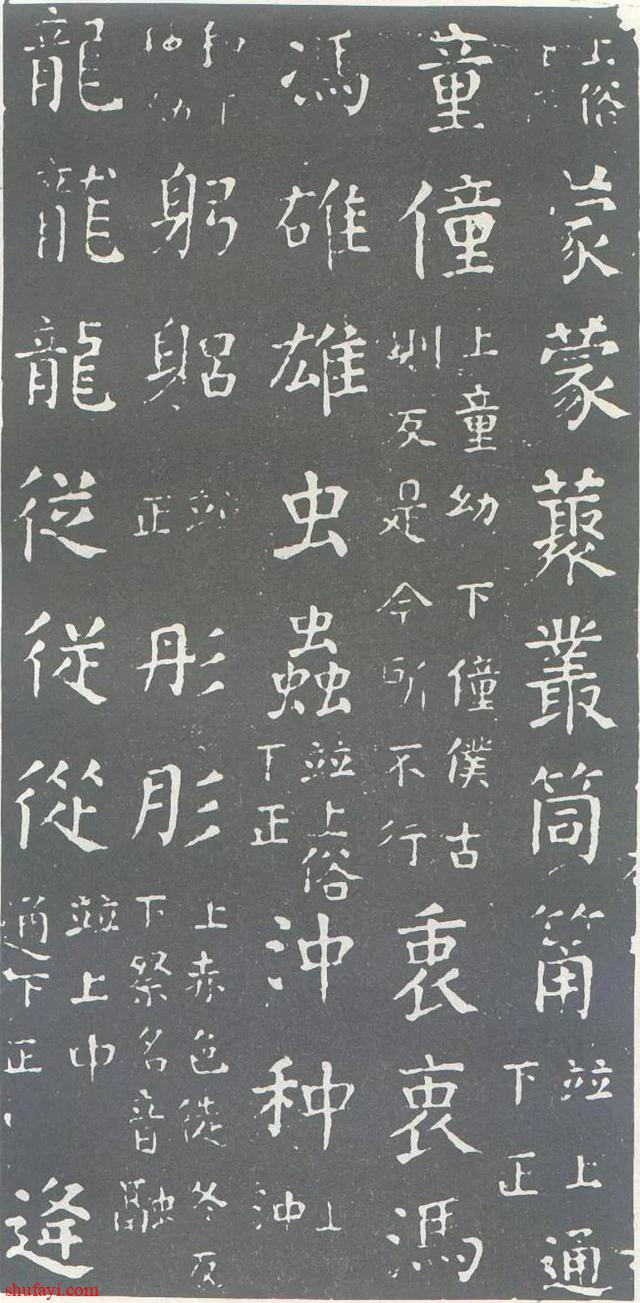 上俗蒙蒙藂叢筒筩竝上通下正
童僮上童幼下僮僕古則反是今所不行衷衷馮
馮䧺雄虫蟲竝上俗下正沖种上沖
和下种幼躬躳竝正彤肜上赤色徒冬反下祭名音融
龍龍龍従従從竝上中通下正逢
shufayi.com